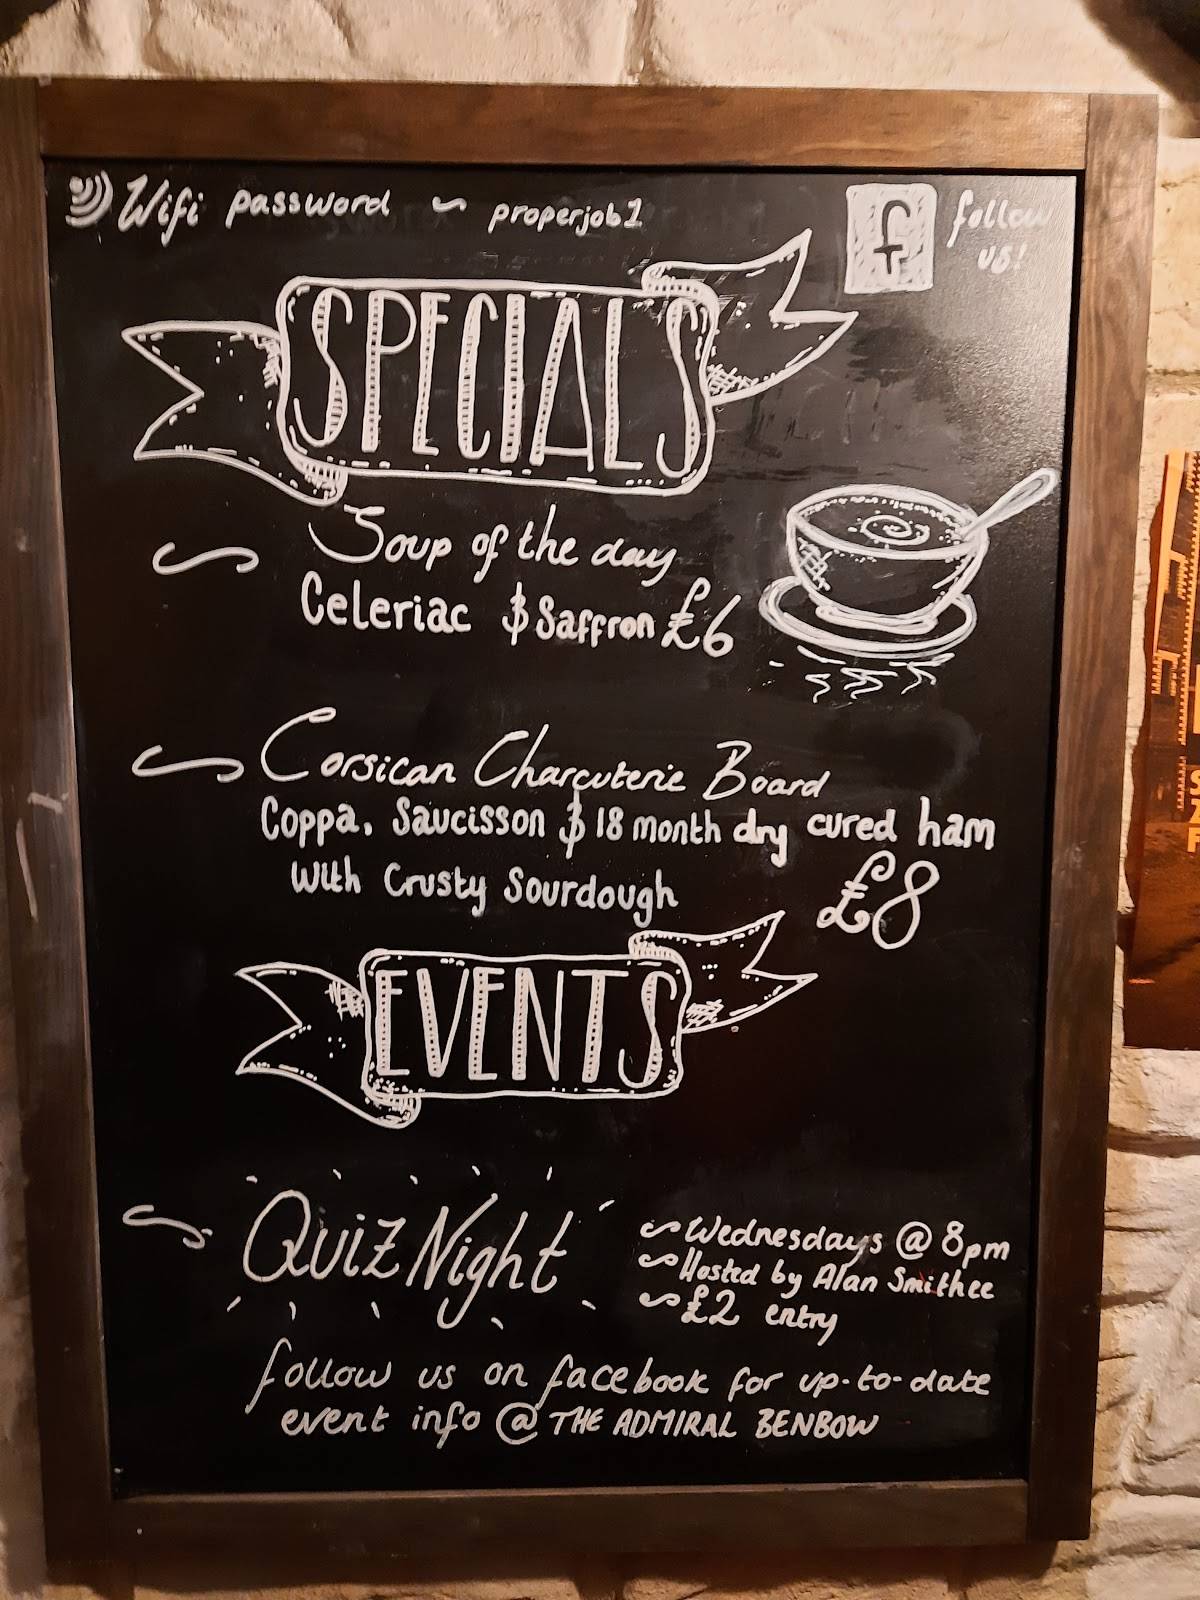 Wifi password ~ properjob1
f follow us!
SPECIALS
~ Soup of the day
Celeriac & Saffron £6
~ Corsican Charcuterie Board
Coppa, Saucisson & 18 month dry cured ham
with Crusty Sourdough £8
EVENTS
~ Quiz Night
~ Wednesdays @ 8pm
~ Hosted by Alan Smithee
~ £2 entry
follow us on facebook for up-to-date
event info @ THE ADMIRAL BENBOW